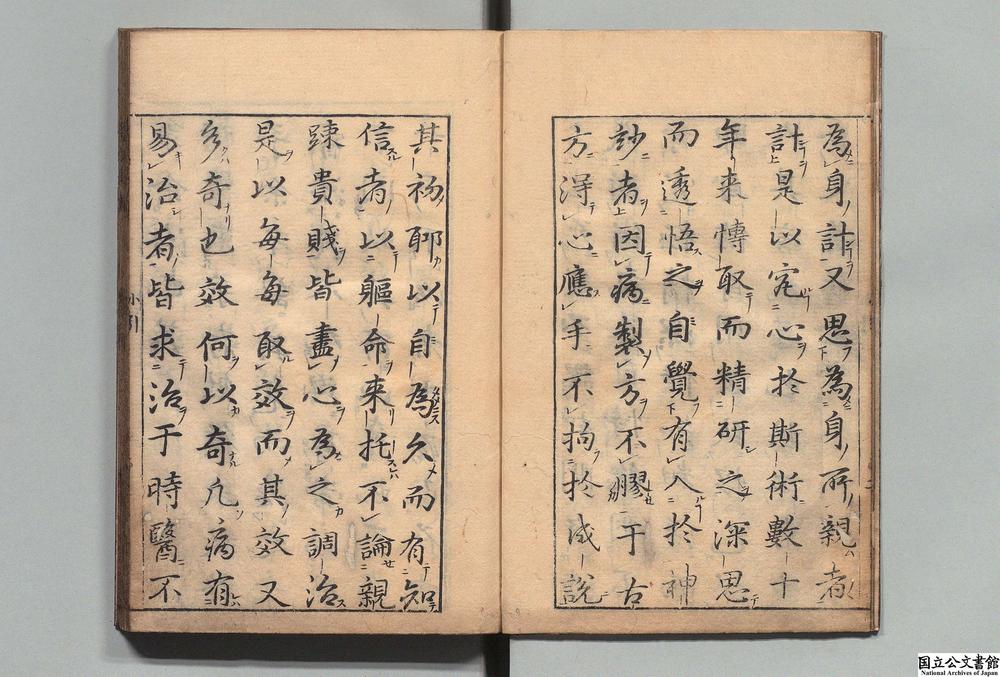 為身計又思為身所親者
計是以究心於斯術數十
年來博取而精研之深思
而透悟之自覺有入於神
妙者因病製方不膠于古
方得心應手不拘於成說
其初耶以自為久而有知
信者以軀命来托不論親
踈貴賤皆盡心為之調治
是以每每取效而其效又
多奇也效何以奇凡病有
易治者皆求治于時醫不
小引
国立公文書館
National Archives of Japan